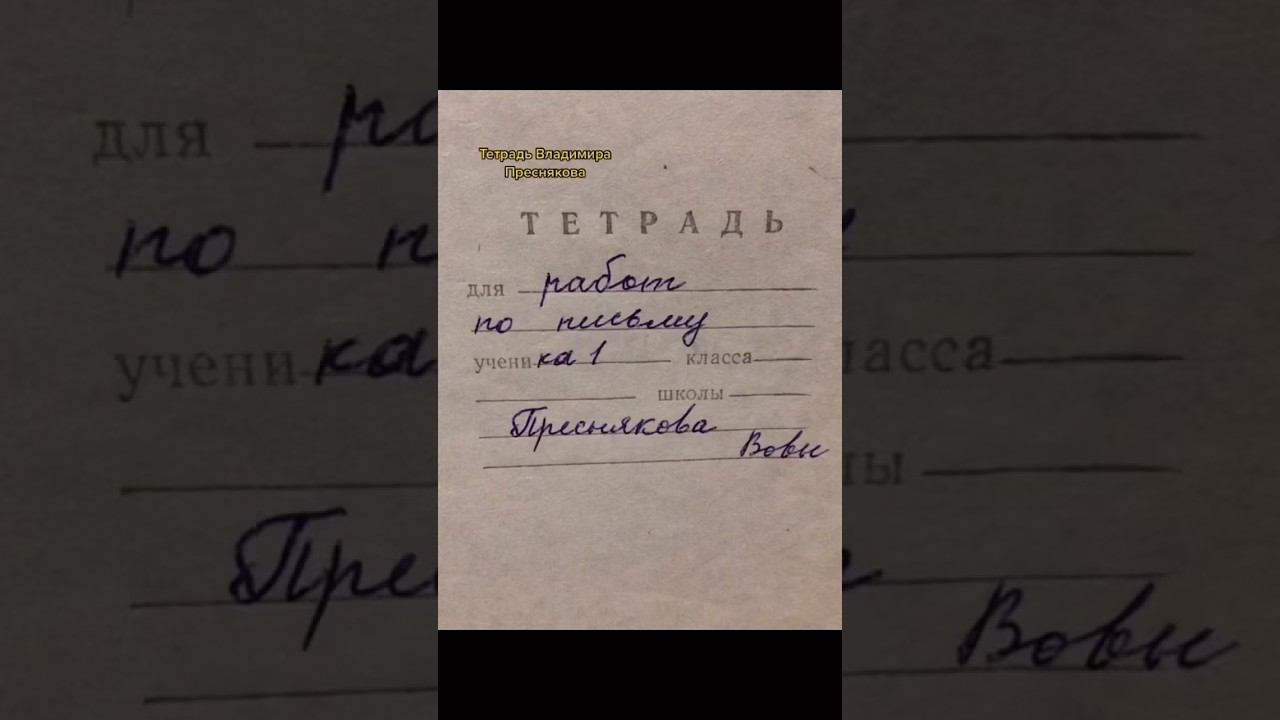 Тетрадь Владимира
Преснякова
ТЕТРАДЬ
для работ
по письму
ученика 1 класса
школы
Преснякова
Вовы